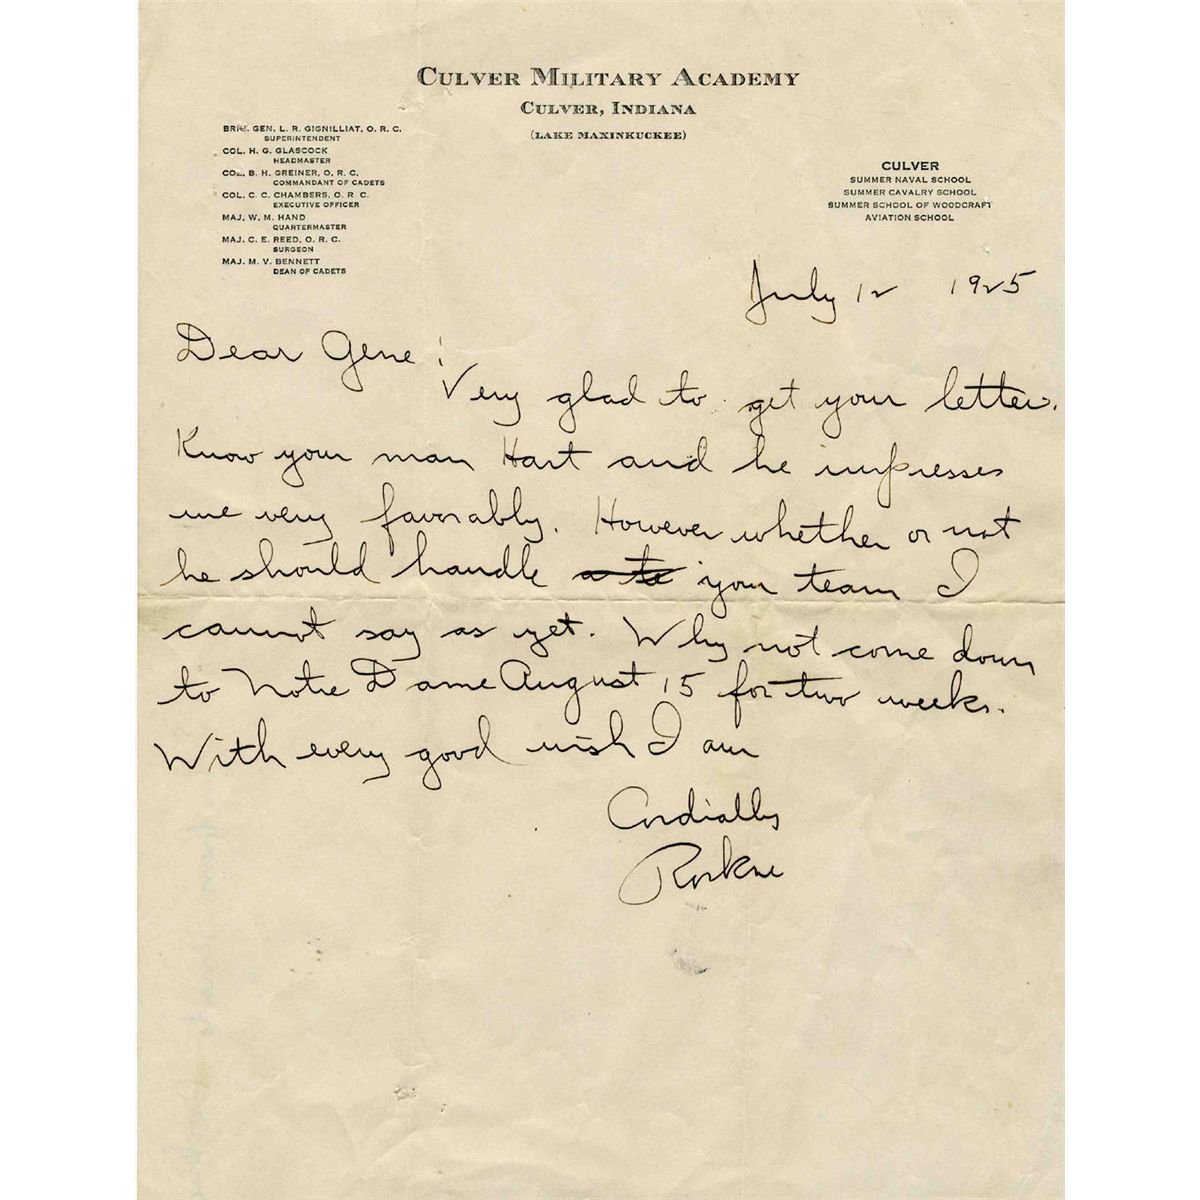 CULVER MILITARY ACADEMY
CULVER, INDIANA
(LAKE MAXINKUCKEE)
BRIG. GEN. L. R. GIGNILLIAT, O. R. C.
SUPERINTENDENT
COL. H. G. GLASCOCK
HEADMASTER
COL. B. H. GREINER, O. R. C.
COMMANDANT OF CADETS
COL. C. C. CHAMBERS, O. R. C.
EXECUTIVE OFFICER
MAJ. W. M. HAND
QUARTERMASTER
MAJ. C. E. REED, O. R. C.
SURGEON
MAJ. M. V. BENNETT
DEAN OF CADETS
CULVER
SUMMER NAVAL SCHOOL
SUMMER CAVALRY SCHOOL
SUMMER SCHOOL OF WOODCRAFT
AVIATION SCHOOL
July 12 1925
Dear Gene:
Very glad to get your letter.
Know your man Hart and he impresses
me very favorably. However whether or not
he should handle your team I
cannot say as yet. Why not come down
to Notre Dame August 15 for two weeks.
With every good wish I am
Cordially
Rockne